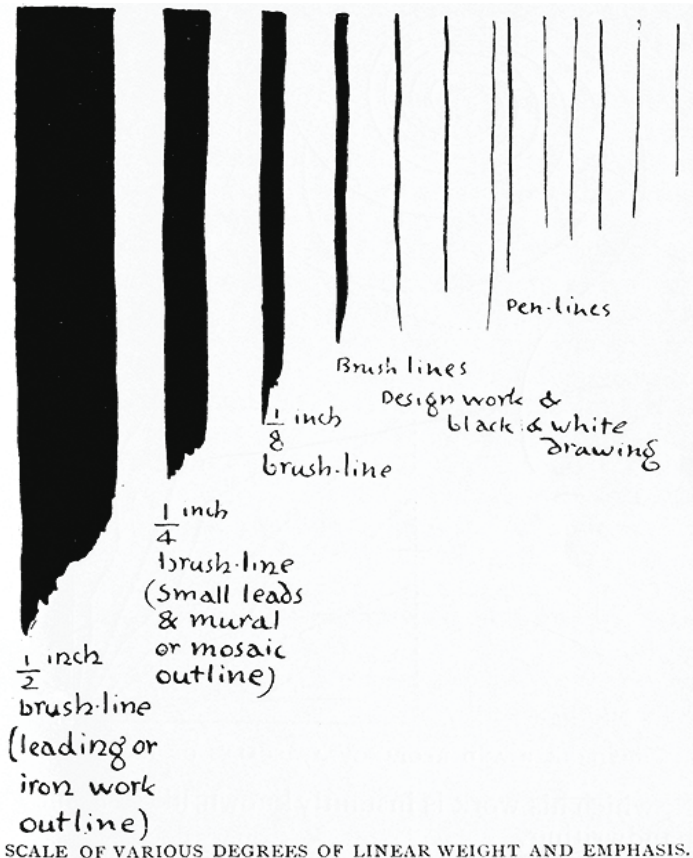 Pen-lines
Brush lines
Design work &
black & white
drawing
1/8 inch
brush-line
1/4 inch
brush-line
(Small leads
& mural
or mosaic
outline)
1/2 inch
brush-line
(leading or
iron work
outline)
SCALE OF VARIOUS DEGREES OF LINEAR WEIGHT AND EMPHASIS.